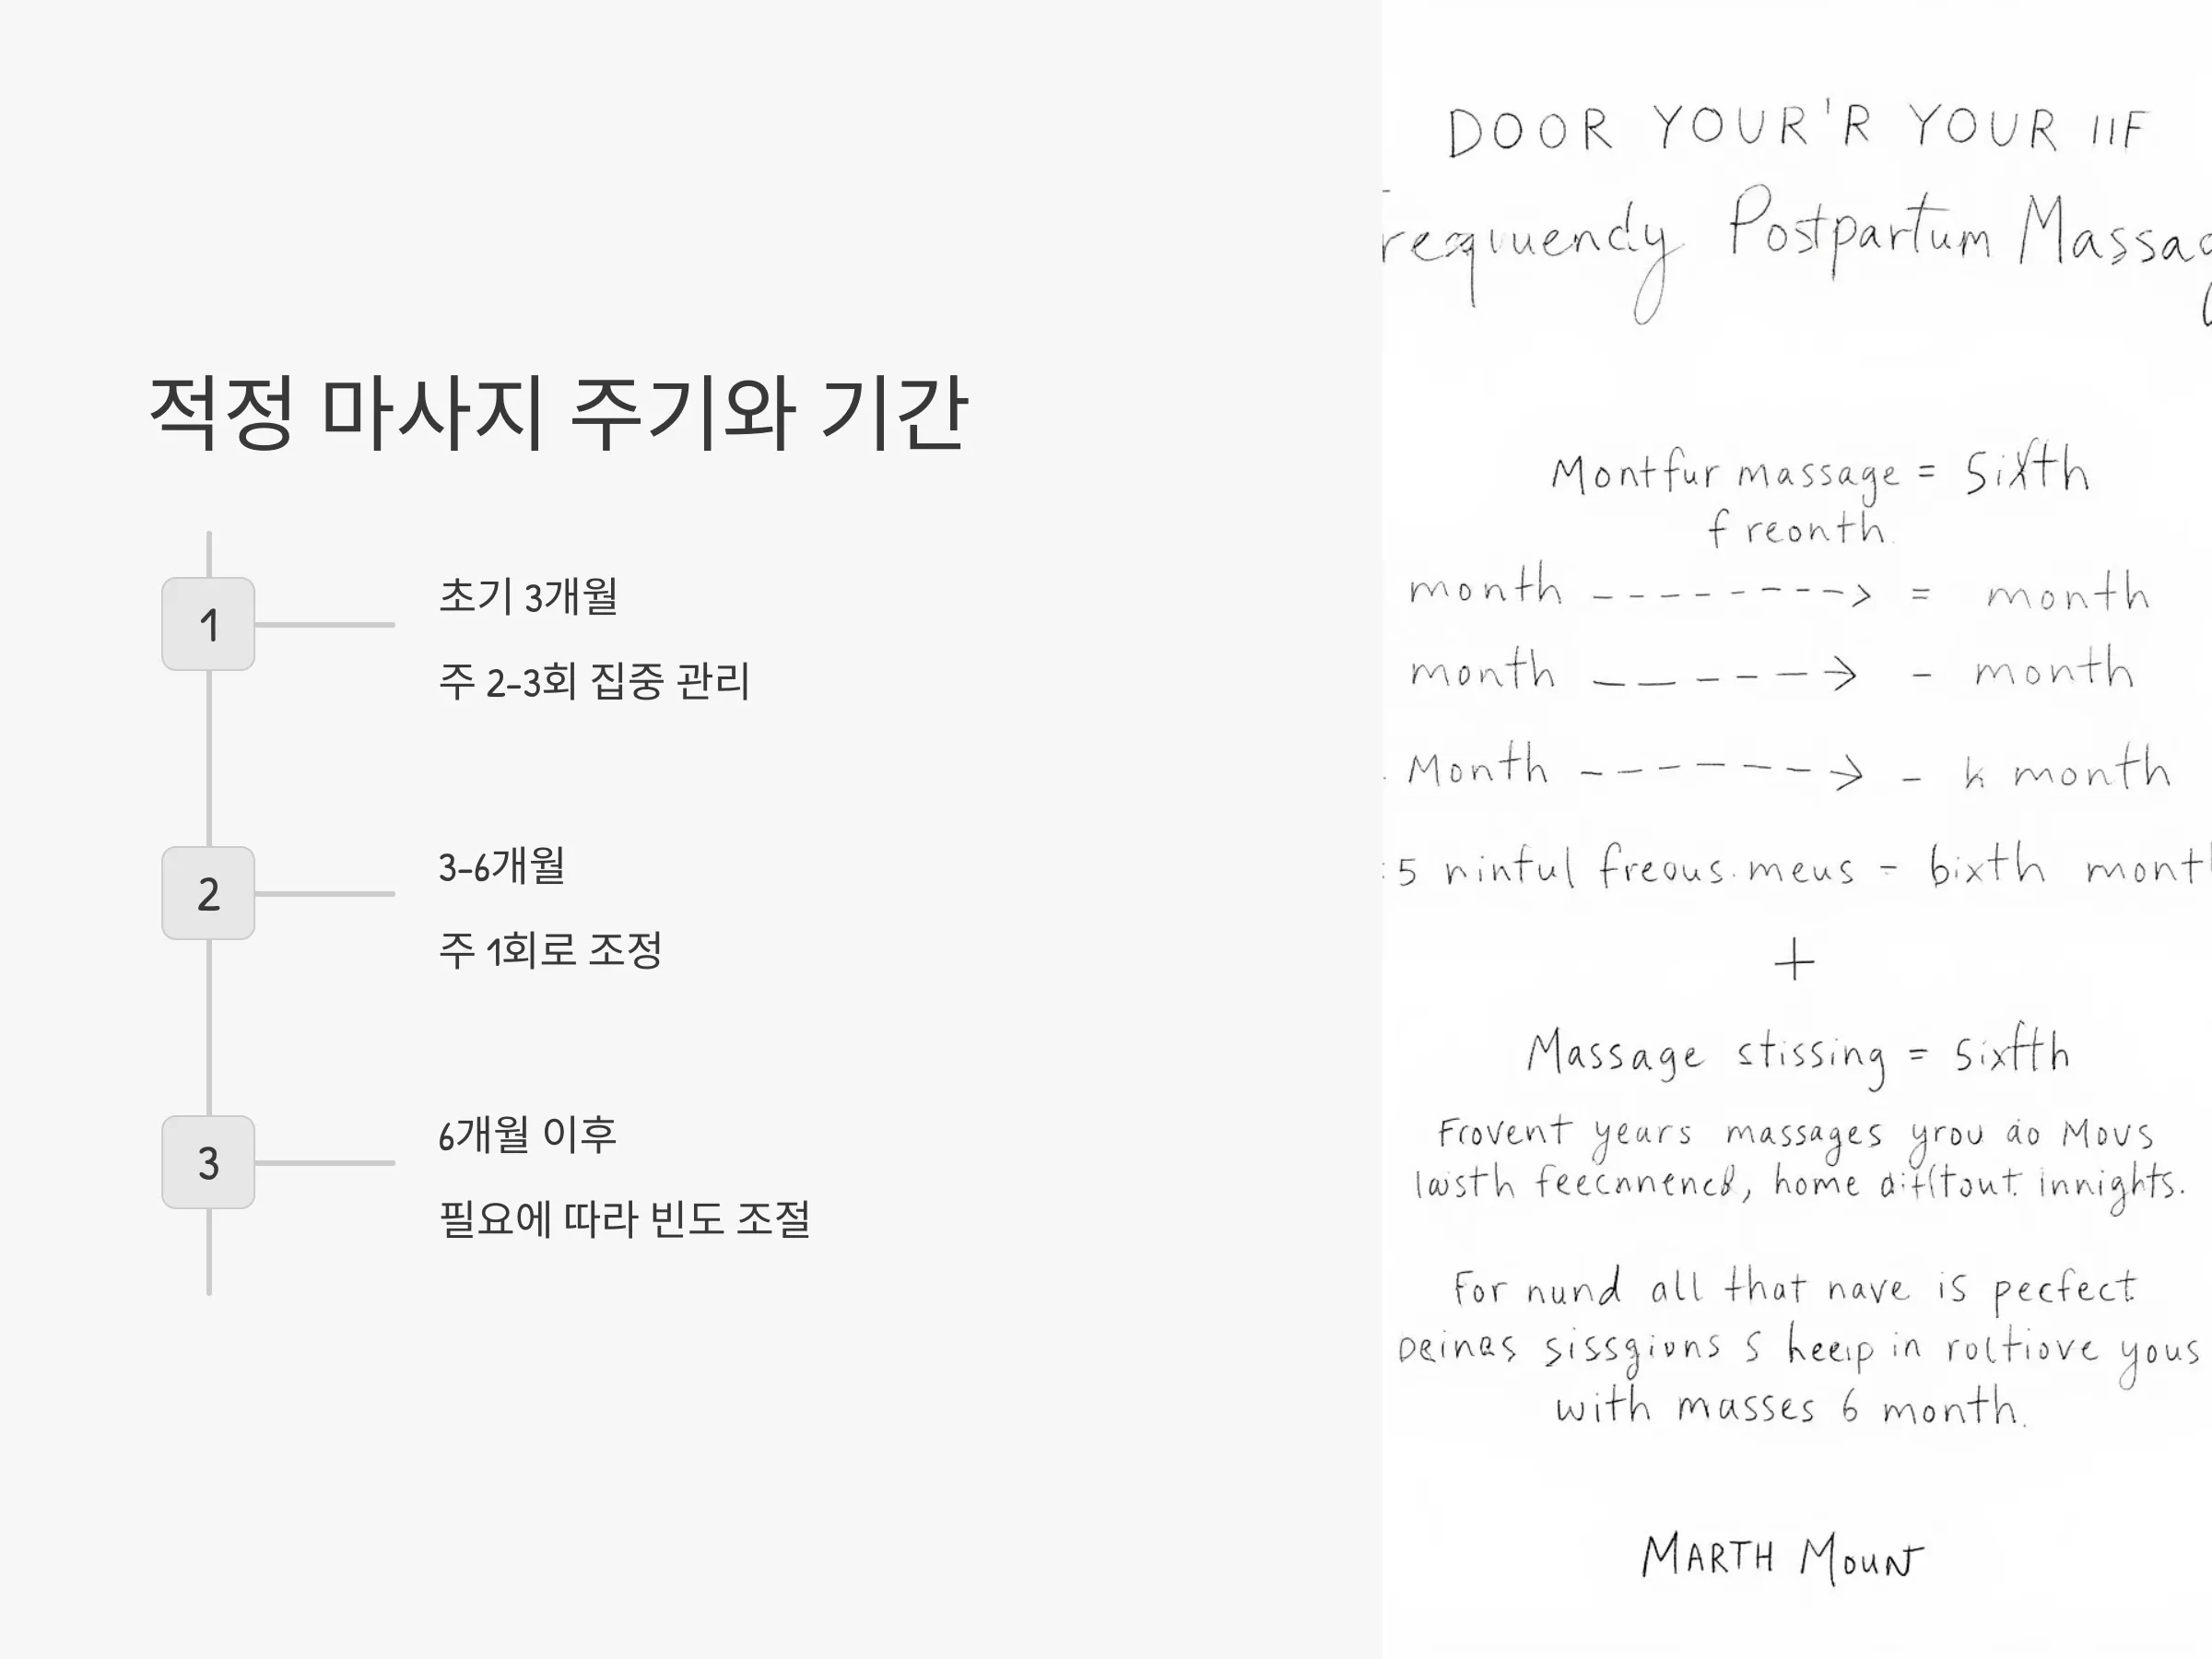 적정 마사지 주기와 기간
1
초기 3개월
주 2-3회 집중 관리
2
3-6개월
주 1회로 조정
3
6개월 이후
필요에 따라 빈도 조절
DOOR YOUR'R YOUR IIF
Postpartum
Montfur massage = Sixth
f reonth.
month -------> = month
month -----> - month
Month ------> - k month
5 nintul freous. meus - bixth
+
Massage stissing = Sixfth
Frovent years massages yrou do Movs
home innights.
For nund all that nave is pecfect
sissgions S heeip in roltiove yous
with masses 6 month.
MARTH MOUNT